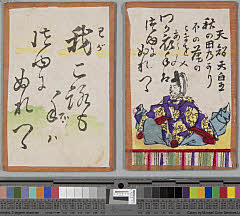 天智天皇
秋の田のかり
ほの庵の
とまをあらみ
わか衣手は
つゆに
ぬれつゝ
我ころも
手は
つゆに
ぬれつゝ